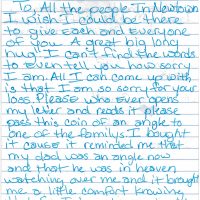 To, All the people In Newtown
I wish I could be there
to give Each and Everyone
of you. A great big long
hug! I can't find the words
to even tell you how sorry
I am. All I can come up with
is that I am so sorry for your
loss. Please who ever opens
my letter and reads it please
pass this coin of an angle to
one of the familys. I bought
it cause it reminded me that
my dad was an angle now
and that he was in heaven
watching over me and it brought
me a little comfort knowing